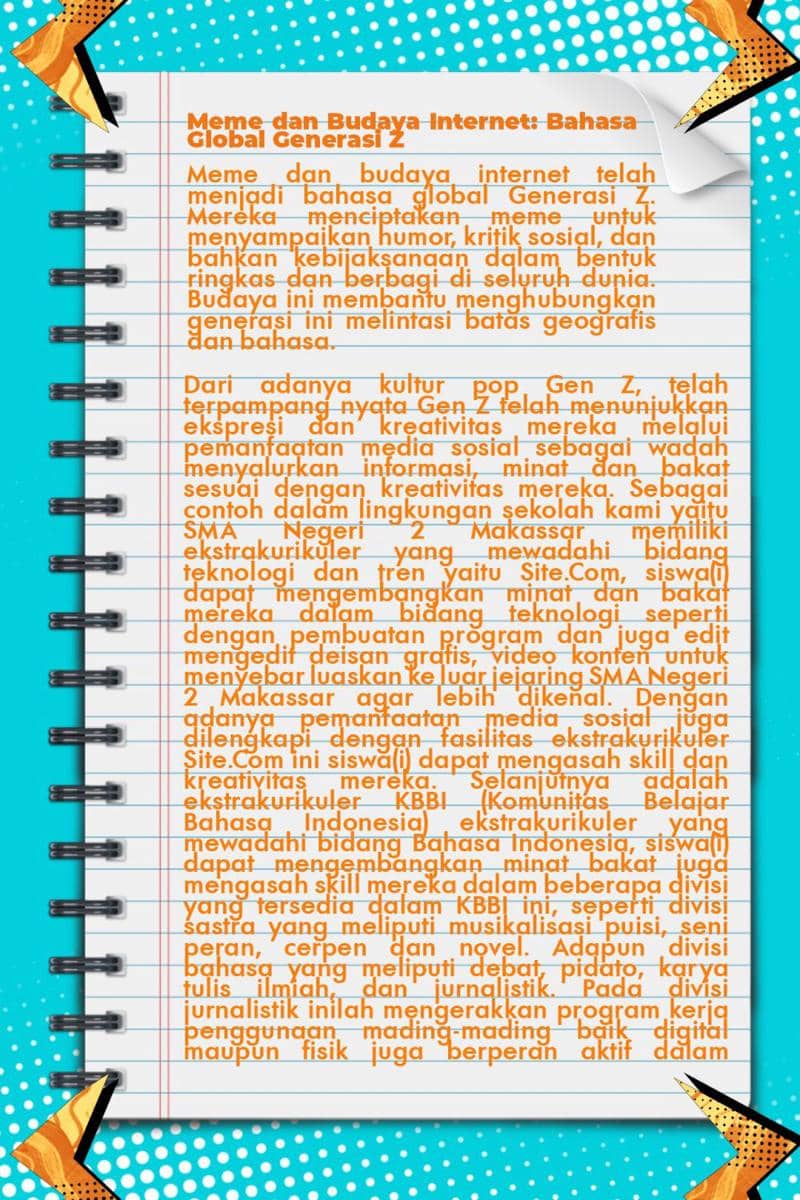 Meme dan Budaya Internet: Bahasa
Global Generasi Z
Meme dan budaya internet telah
menjadi bahasa global Generasi Z.
Mereka menciptakan meme untuk
menyampaikan humor, kritik sosial, dan
bahkan kebijaksanaan dalam bentuk
ringkas dan berbagi di seluruh dunia.
Budaya ini membantu menghubungkan
generasi ini melintasi batas geografis
dan bahasa.
Dari adanya kultur pop Gen Z, telah
terpampang nyata Gen Z telah menunjukkan
ekspresi dan kreativitas mereka melalui
pemanfaatan media sosial sebagai wadah
menyalurkan informasi, minat dan bakat
sesuai dengan kreativitas mereka. Sebagai
contoh dalam lingkungan sekolah kami yaitu
SMA Negeri 2 Makassar memiliki
ekstrakurikuler yang mewadahi bidang
teknologi dan tren yaitu Site.Com, siswa(i)
dapat mengembangkan minat dan bakat
mereka dalam bidang teknologi seperti
dengan pembuatan program dan juga edit
mengedit deisan grafis, video konten untuk
menyebar luaskan ke luar jejaring SMA Negeri
2 Makassar agar lebih dikenal. Dengan
adanya pemanfaatan media sosial juga
dilengkapi dengan fasilitas ekstrakurikuler
Site.Com ini siswa(i) dapat mengasah skill dan
kreativitas mereka. Selanjutnya adalah
ekstrakurikuler KBBI (Komunitas Belajar
Bahasa Indonesia) ekstrakurikuler yang
mewadahi bidang Bahasa Indonesia, siswa(i)
dapat mengembangkan minat bakat juga
mengasah skill mereka dalam beberapa divisi
yang tersedia dalam KBBI ini, seperti divisi
sastra yang meliputi musikalisasi puisi, seni
peran, cerpen dan novel. Adapun divisi
bahasa yang meliputi debat, pidato, karya
tulis ilmiah, dan jurnalistik. Pada divisi
jurnalistik inilah mengerakkan program kerja
penggunaan mading-mading baik digital
maupun fisik juga berperan aktif dalam